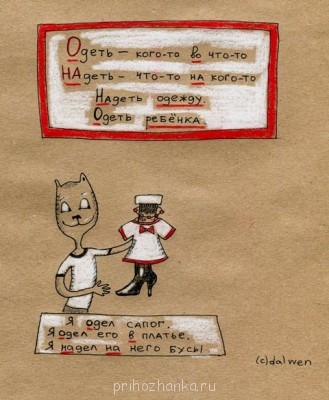 Одеть – кого-то во что-то
НАдеть – что-то на кого-то
Надеть одежду.
Одеть ребёнка.
Я одел сапог.
Я одел его в платье.
Я надел на него бусы
(c)dalwen
prihozhanka.ru